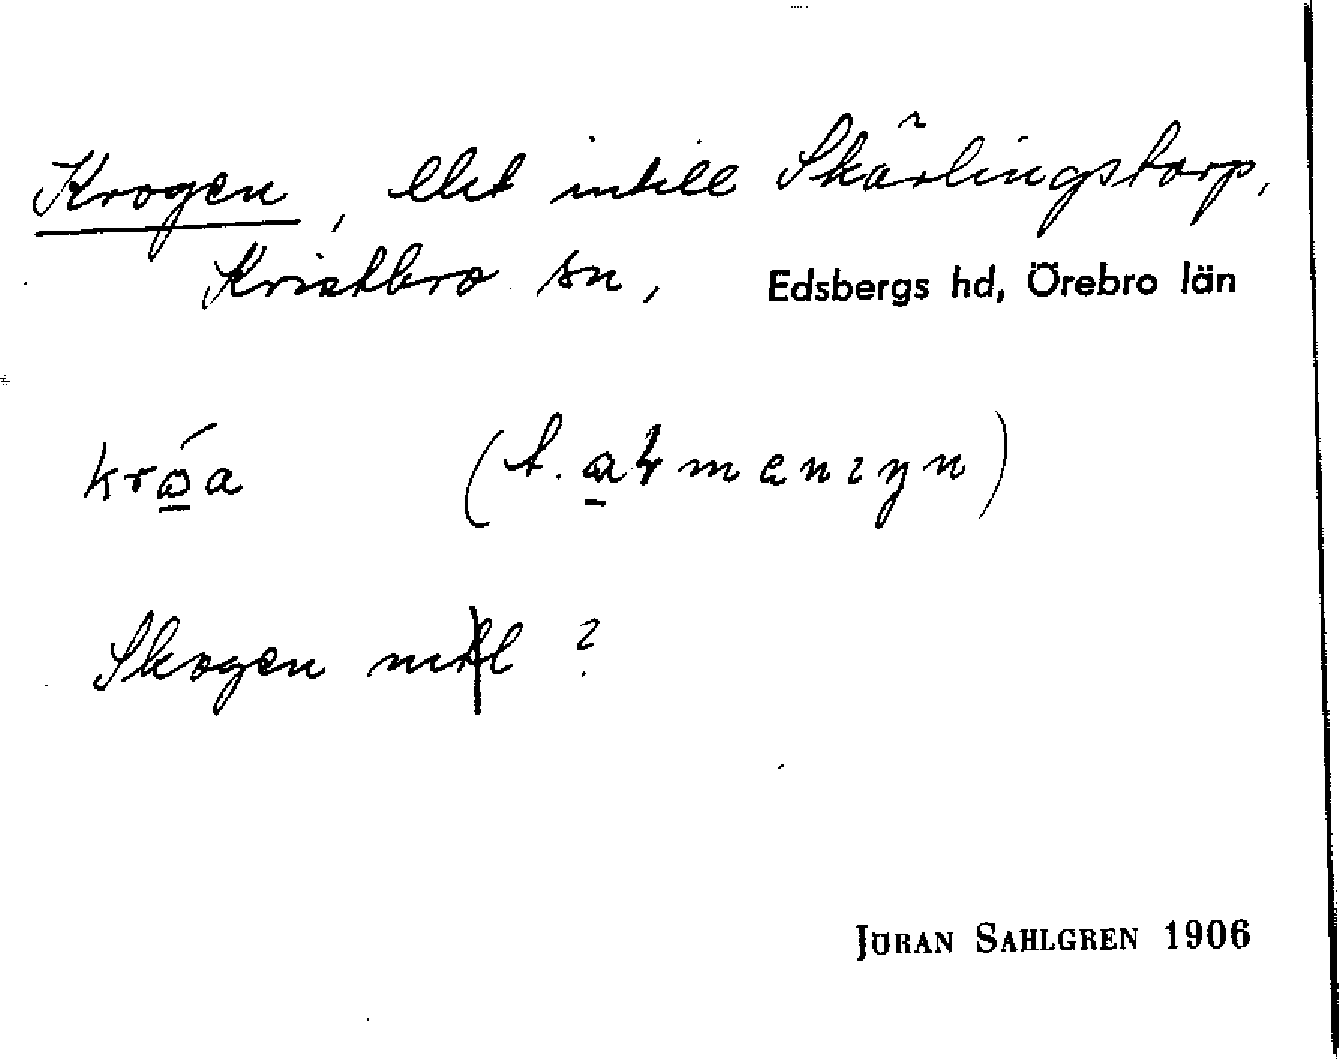 Krogen, lht intill Skärlingstorp,
Kvistbro sn, Edsbergs hd, Örebro län
kró̲a (t. a̲ɫmeniŋn)
Skogen mtl ?
JÖRAN SAHLGREN 1906